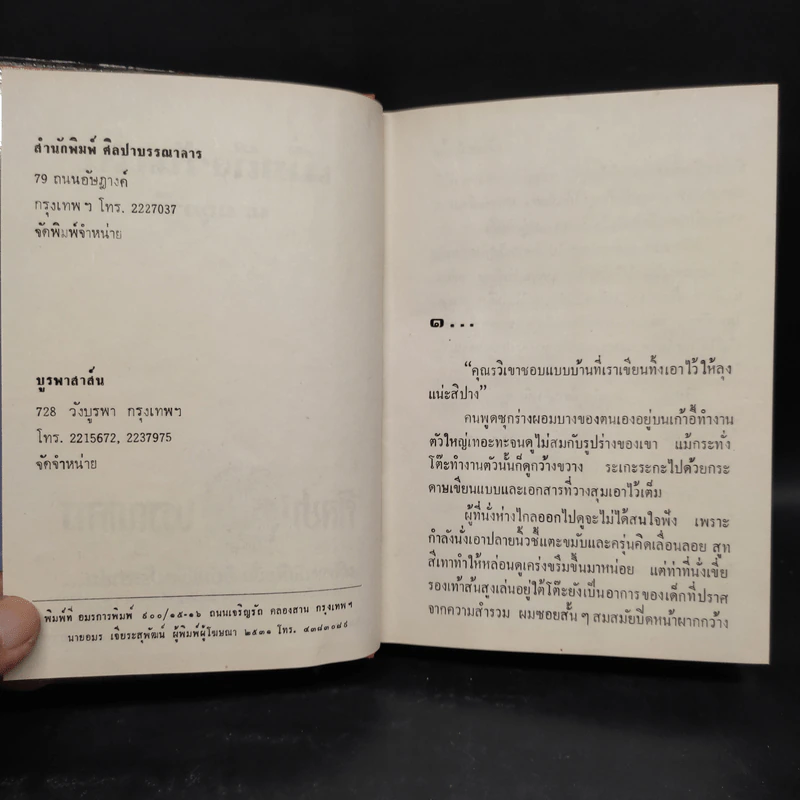 สำนักพิมพ์ ศิลปาบรรณาคาร
79 ถนนอัษฎางค์
กรุงเทพฯ โทร. 2227037
จัดพิมพ์จำหน่าย
บูรพาสาส์น
728 วังบูรพา กรุงเทพฯ
โทร. 2215672, 2237975
จัดจำหน่าย
พิมพ์ที่ อมรการพิมพ์ ๙๐๐/๑๕-๑๖ ถนนเจริญรัถ คลองสาน กรุงเทพฯ
นายอมร เจียระสุพัฒน์ ผู้พิมพ์ผู้โฆษณา ๒๕๓๑ โทร. ๔๓๘๓๐๘๙
๑...
“คุณรวิเขาชอบแบบบ้านที่เราเขียนทิ้งเอาไว้ให้ลุง
แน่ะสิปาง”
คนพูดซุกร่างผอมบางของตนเองอยู่บนเก้าอี้ทำงาน
ตัวใหญ่เทอะทะจนดูไม่สมกับรูปร่างของเขา แม้กระทั่ง
โต๊ะทำงานตัวนั้นก็ดูกว้างขวาง ระเกะระกะไปด้วยกระ
ดาษเขียนแบบและเอกสารที่วางสุมเอาไว้เต็ม
ผู้ที่นั่งห่างไกลออกไปดูจะไม่ได้สนใจฟัง เพราะ
กำลังนั่งเอาปลายนิ้วชี้แตะขมับและครุ่นคิดเลื่อนลอย สูท
สีเทาทำให้หล่อนดูเคร่งขรึมขึ้นมาหน่อย แต่ท่าที่นั่งเขี่ย
รองเท้าส้นสูงเล่นอยู่ใต้โต๊ะยังเป็นอาการของเด็กที่ปราศ
จากความสำรวม ผมซอยสั้นๆ สมสมัยปิดหน้าผากกว้าง